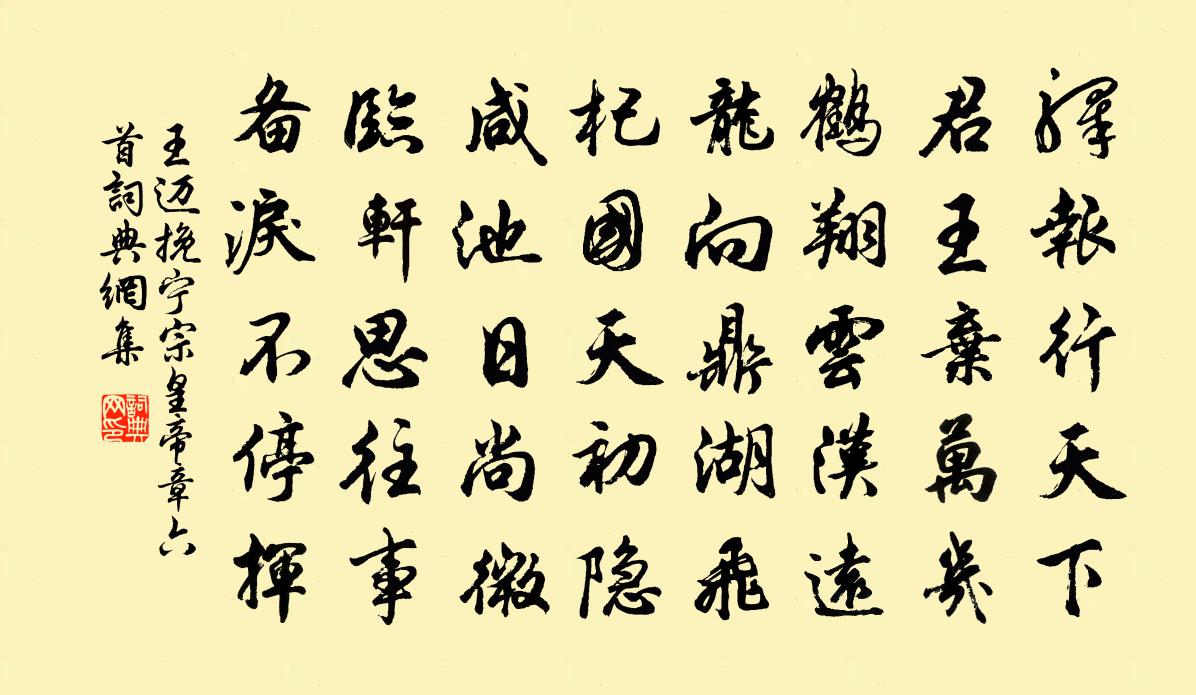 驛報行天下
君王棄萬幾
鶴翔雲漢遠
龍向鼎湖飛
杞國天初隐
咸池日尚微
臨軒思往事
备淚不停揮
王迈挽宁宗皇帝章六
首詞典網集
詞典
网印